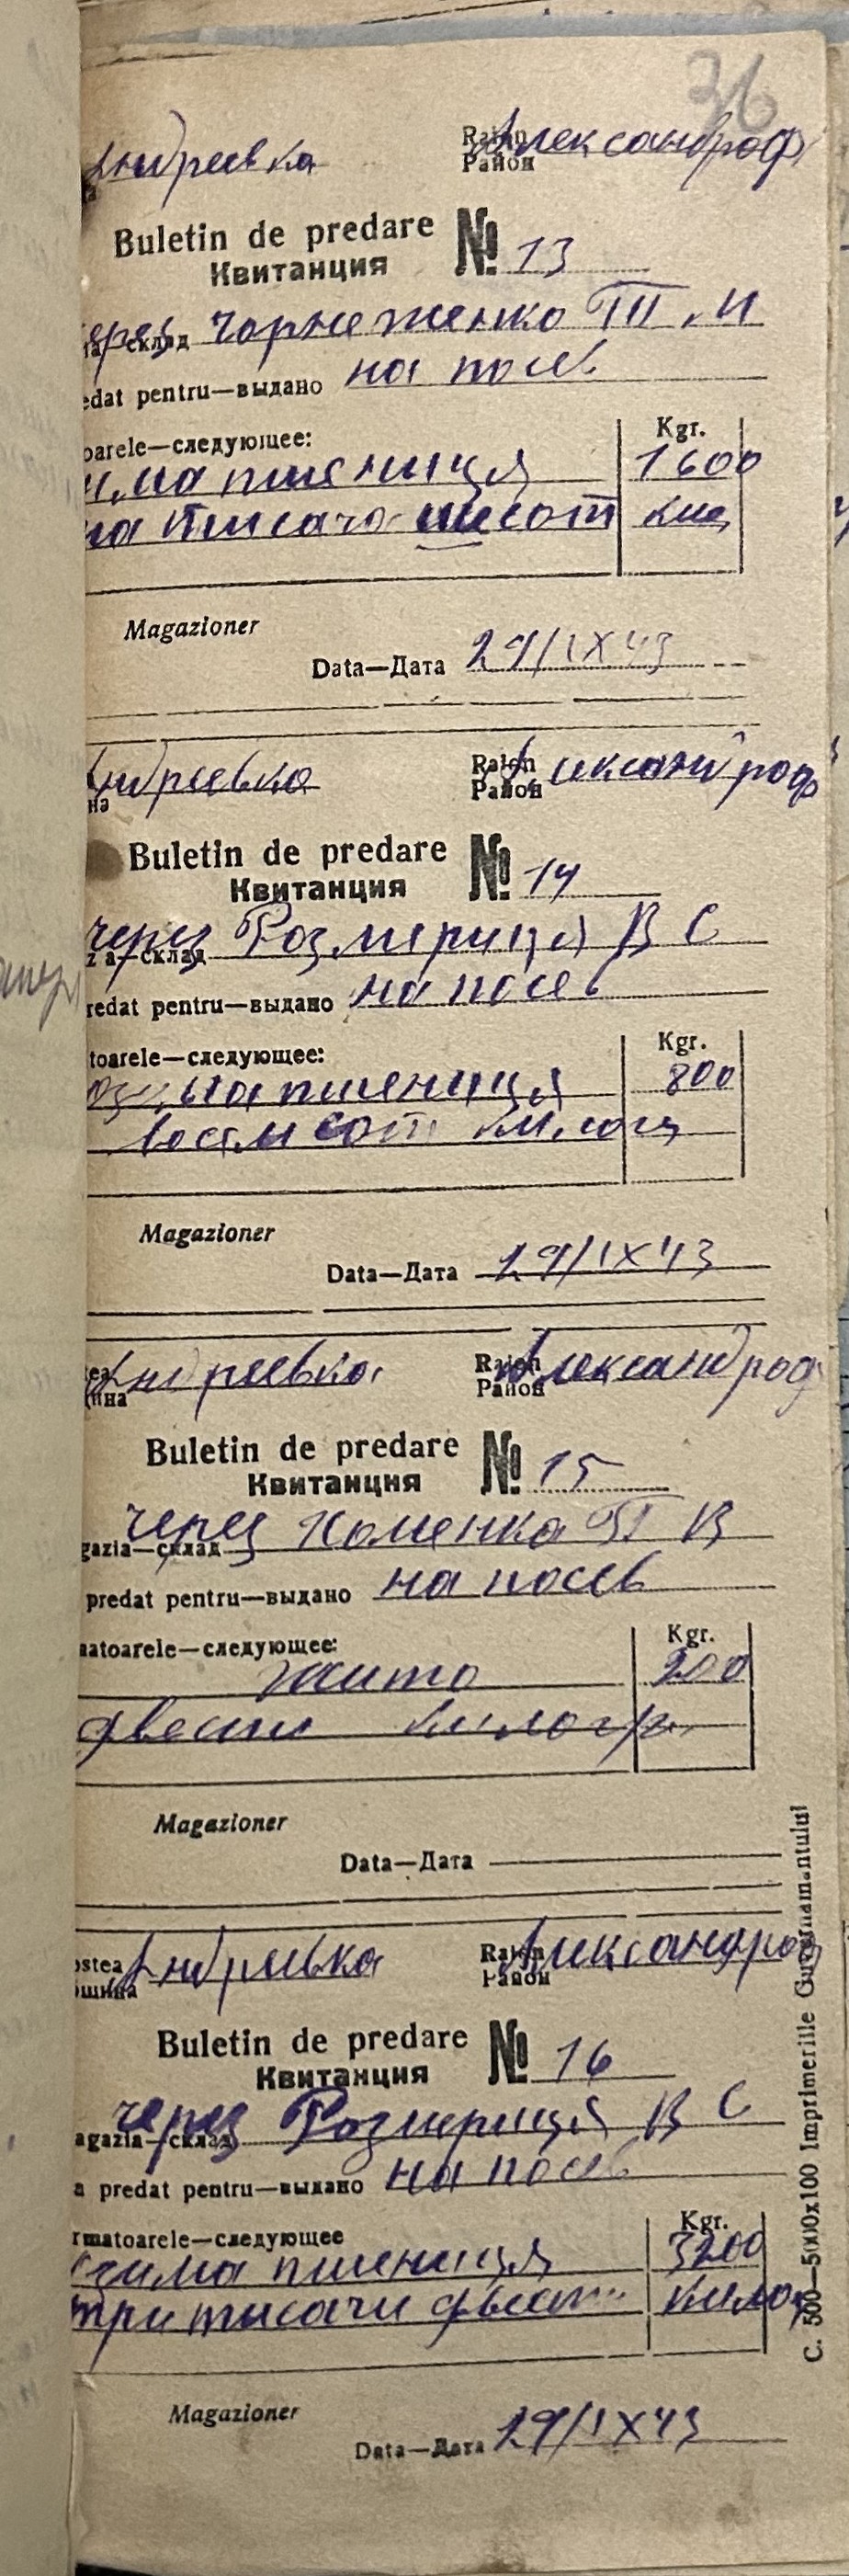 36
Андреевка Raion Александроф
Район
Buletin de predare № 13
Квитанция
через Чорнеженко П. И
склад
edat pentru—выдано на посев
oarele—следующее: Kgr.
има пшениця 1600
на тисяча шесот кил
Magazioner
Data—Дата 29/IX 43
Андреевка Raion Александроф
на Район
Buletin de predare № 14
Квитанция
через Розмериця В С
za—склад
redat pentru—выдано на посев
toarele—следующее: Kgr.
озима пшениця 800
восемсот килогр
Magazioner
Data—Дата 29/IX 43
Андреевка Raion Александроф
Район
Buletin de predare № 15
Квитанция
через Хоменко П В
gazia—склад
predat pentru—выдано на посев
matoarele—следующее: Kgr.
жито 200
двести килогр
Magazioner
Data—Дата
ostea Андреевка Raion Александроф
Район
Buletin de predare № 16
Квитанция
через Розмериця В С
agazia—склад
a predat pentru—выдано на посев
rmatoarele—следующее Kgr.
озима пшениця 3200
три тисячи двести килог
Magazioner
Data—Дата 29/IX 43
C. 500—5000x100 Imprimeriile Guvernamantului